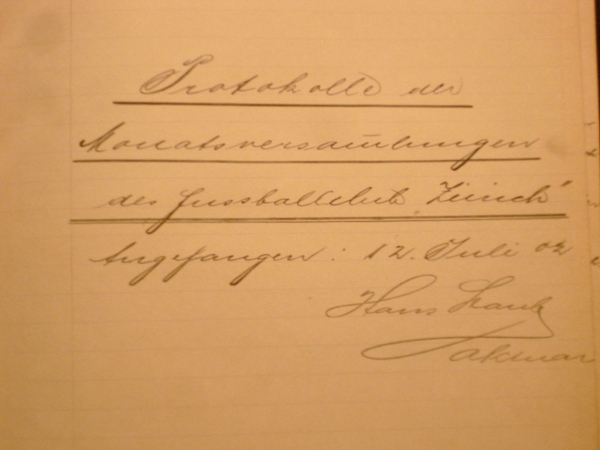 Protokolle der
Monatsversam̅lungen
des Fussballclub „Zürich"
Angefangen: 12. Juli 02
Hans
Aktuar